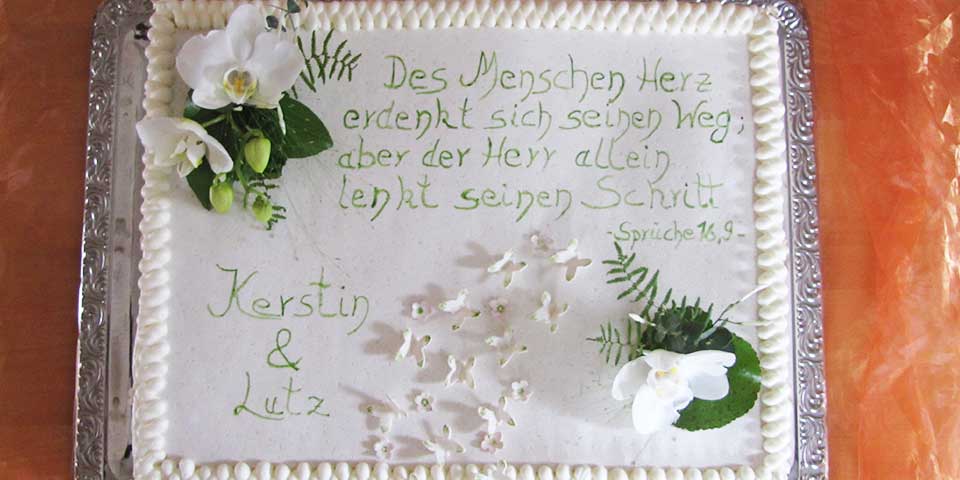 Des Menschen Herz
erdenkt sich seinen Weg;
aber der Herr allein
lenkt seinen Schritt
-Sprüche 16,9-
Kerstin
&
Lutz